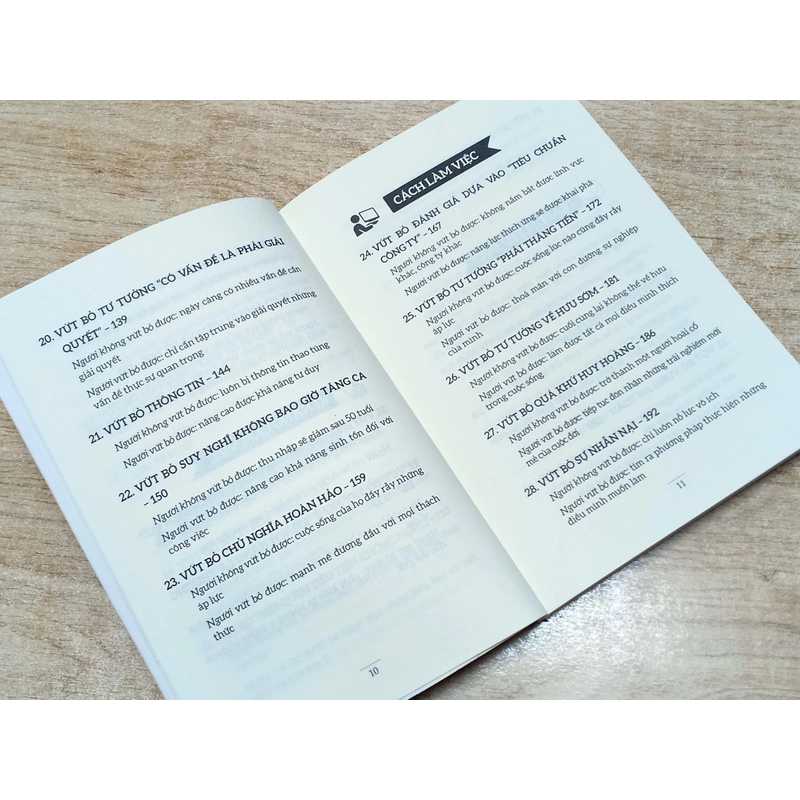 20. VỨT BỎ TƯ TƯỞNG "CÓ VẤN ĐỀ LÀ PHẢI GIẢI
QUYẾT" – 139
Người không vứt bỏ được: ngày càng có nhiều vấn đề cần
giải quyết
Người vứt bỏ được: chỉ cần tập trung vào giải quyết những
vấn đề thực sự quan trọng
21. VỨT BỎ THÔNG TIN – 144
Người không vứt bỏ được: luôn bị thông tin thao túng
Người vứt bỏ được: nâng cao được khả năng tư duy
22. VỨT BỎ SUY NGHĨ KHÔNG BAO GIỜ TĂNG CA
– 150
Người không vứt bỏ được: thu nhập sẽ giảm sau 50 tuổi
Người vứt bỏ được: nâng cao khả năng sinh tồn đối với
công việc
23. VỨT BỎ CHỦ NGHĨA HOÀN HẢO – 159
Người không vứt bỏ được: cuộc sống của họ đầy rẫy những
áp lực
Người vứt bỏ được: mạnh mẽ đương đầu với mọi thách
thức
10
CÁCH LÀM VIỆC
24. VỨT BỎ ĐÁNH GIÁ DỰA VÀO "TIÊU CHUẨN
CÔNG TY" – 167
Người không vứt bỏ được: không nắm bắt được lĩnh vực
khác, công ty khác
Người vứt bỏ được: năng lực thích ứng sẽ được khai phá
25. VỨT BỎ TƯ TƯỞNG "PHẢI THĂNG TIẾN" – 172
Người không vứt bỏ được: cuộc sống lúc nào cũng đầy rẫy
áp lực
Người vứt bỏ được: thoả mãn với con đường sự nghiệp
của mình
26. VỨT BỎ TƯ TƯỞNG VỀ HƯU SỚM – 181
Người không vứt bỏ được: cuối cùng lại không thể về hưu
Người vứt bỏ được: làm được tất cả mọi điều mình thích
trong cuộc sống
27. VỨT BỎ QUÁ KHỨ HUY HOÀNG – 186
Người không vứt bỏ được: trở thành một người hoài cổ
Người vứt bỏ được: tiếp tục đón nhận những trải nghiệm mới
mẻ của cuộc đời
28. VỨT BỎ SỰ NHẪN NẠI – 192
Người không vứt bỏ được: chỉ luôn nỗ lực vô ích
Người vứt bỏ được: tìm ra phương pháp thực hiện những
điều mình muốn làm
11